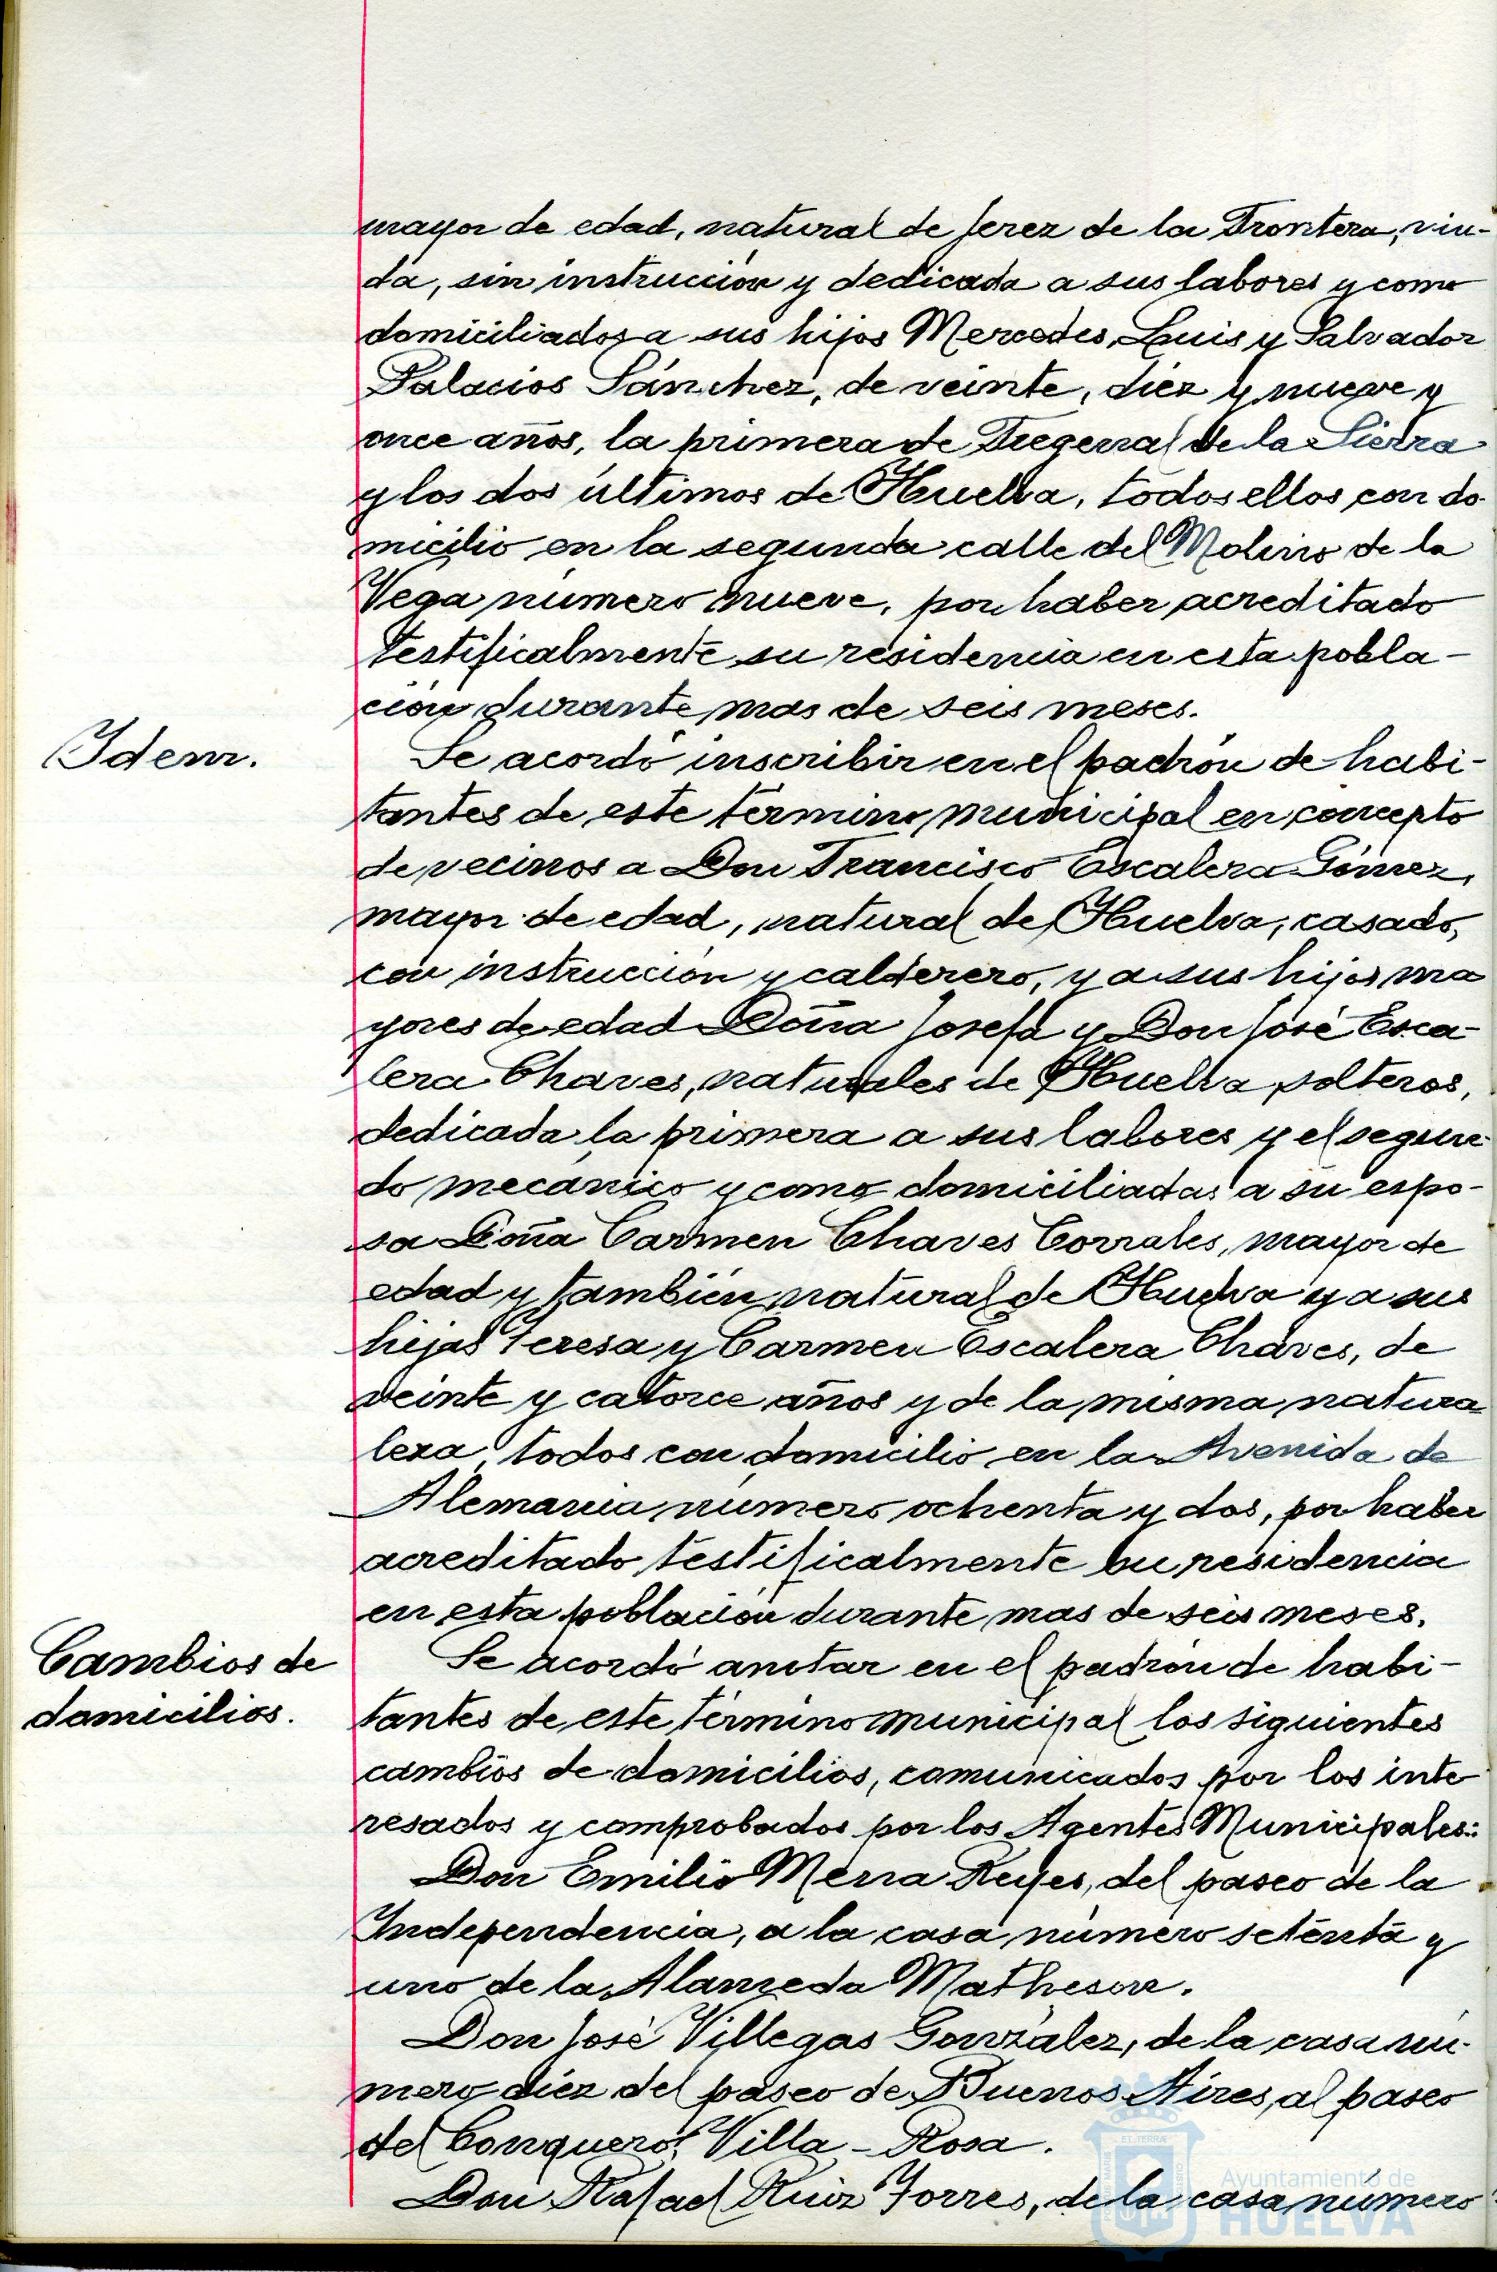 mayor de edad, natural de Jerez de la Frontera, viu-
da, sin instrucción y dedicada a sus labores y como
domiciliados a sus hijos Mercedes, Luis y Salvador
Palacios Sánchez, de veinte, diez y nueve y
once años, la primera de Fregenal de la Sierra
y los dos últimos de Huelva, todos ellos con do-
micilio en la segunda calle del Molino de la
Vega número nueve, por haber acreditado
testificalmente su residencia en esta pobla-
ción durante mas de seis meses.
Idem.
Se acordó inscribir en el padrón de habi-
tantes de este término municipal en concepto
de vecinos a Don Francisco Escalera Gómez,
mayor de edad, natural de Huelva, casado,
con instrucción y calderero, y a sus hijos ma
yores de edad Doña Josefa y Don José Esca-
lera Chaves, naturales de Huelva, solteros,
dedicada la primera a sus labores y el segun-
do mecánico y como domiciliadas a su espo-
sa Doña Carmen Chaves Corrales, mayor de
edad y también natural de Huelva y a sus
hijas Teresa y Carmen Escalera Chaves, de
veinte y catorce años y de la misma natura
leza, todos con domicilio en la Avenida de
Alemania número ochenta y dos, por haber
acreditado testificalmente su residencia
en esta población durante mas de seis meses.
Cambios de
domicilios.
Se acordó anotar en el padrón de habi-
tantes de este término municipal los siguientes
cambios de domicilios, comunicados por los inte
resados y comprobados por los Agentes Municipales:
Don Emilio Mena Reyes, del paseo de la
Independencia, a la casa número setenta y
uno de la Alameda Matheson.
Don José Villegas González, de la casa nú-
mero diez del paseo de Buenos Aires, al paseo
del Conquero, Villa-Rosa.
Don Rafael Ruiz Torres, de la casa número
Ayuntamiento de
HUELVA